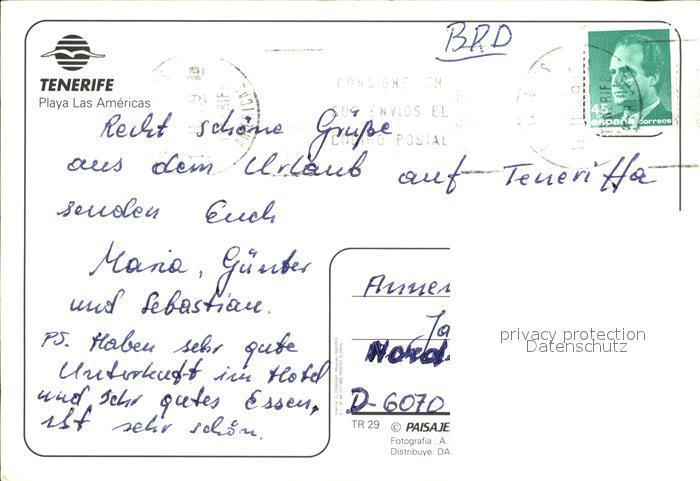 BRD
TENERIFE
Playa Las Américas
CONSIGNE EN
SUS ENVIOS EL
CODIGO POSTAL
45
españa correos
Recht schöne Grüße
aus dem Urlaub auf Teneriffa
senden Euch
Maria, Günter
und Sebastian.
PS. Haben sehr gute
Unterkunft im Hotel
und sehr gutes Essen,
ist sehr schön.
D-6070
TR 29 © PAISAJE
Fotografia: A.
Distribuye: DA
privacy protection
Datenschutz